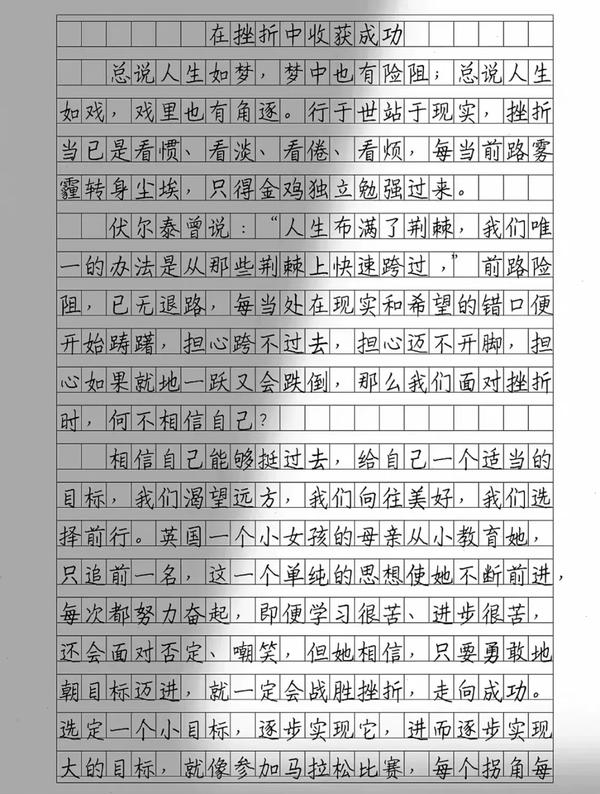 在挫折中收获成功
总说人生如梦，梦中也有险阻；总说人生
如戏，戏里也有角逐。行于世站于现实，挫折
当已是看惯、看淡、看倦、看烦，每当前路雾
霾转身尘埃，只得金鸡独立勉强过来。
伏尔泰曾说：“人生布满了荆棘，我们唯
一的办法是从那些荆棘上快速跨过，”前路险
阻，已无退路，每当处在现实和希望的错口便
开始踌躇，担心跨不过去，担心迈不开脚，担
心如果就地一跃又会跌倒，那么我们面对挫折
时，何不相信自己？
相信自己能够挺过去，给自己一个适当的
目标，我们渴望远方，我们向往美好，我们选
择前行。英国一个小女孩的母亲从小教育她，
只追前一名，这一个单纯的思想使她不断前进，
每次都努力奋起，即便学习很苦、进步很苦，
还会面对否定、嘲笑，但她相信，只要勇敢地
朝目标迈进，就一定会战胜挫折，走向成功。
选定一个小目标，逐步实现它，进而逐步实现
大的目标，就像参加马拉松比赛，每个拐角每